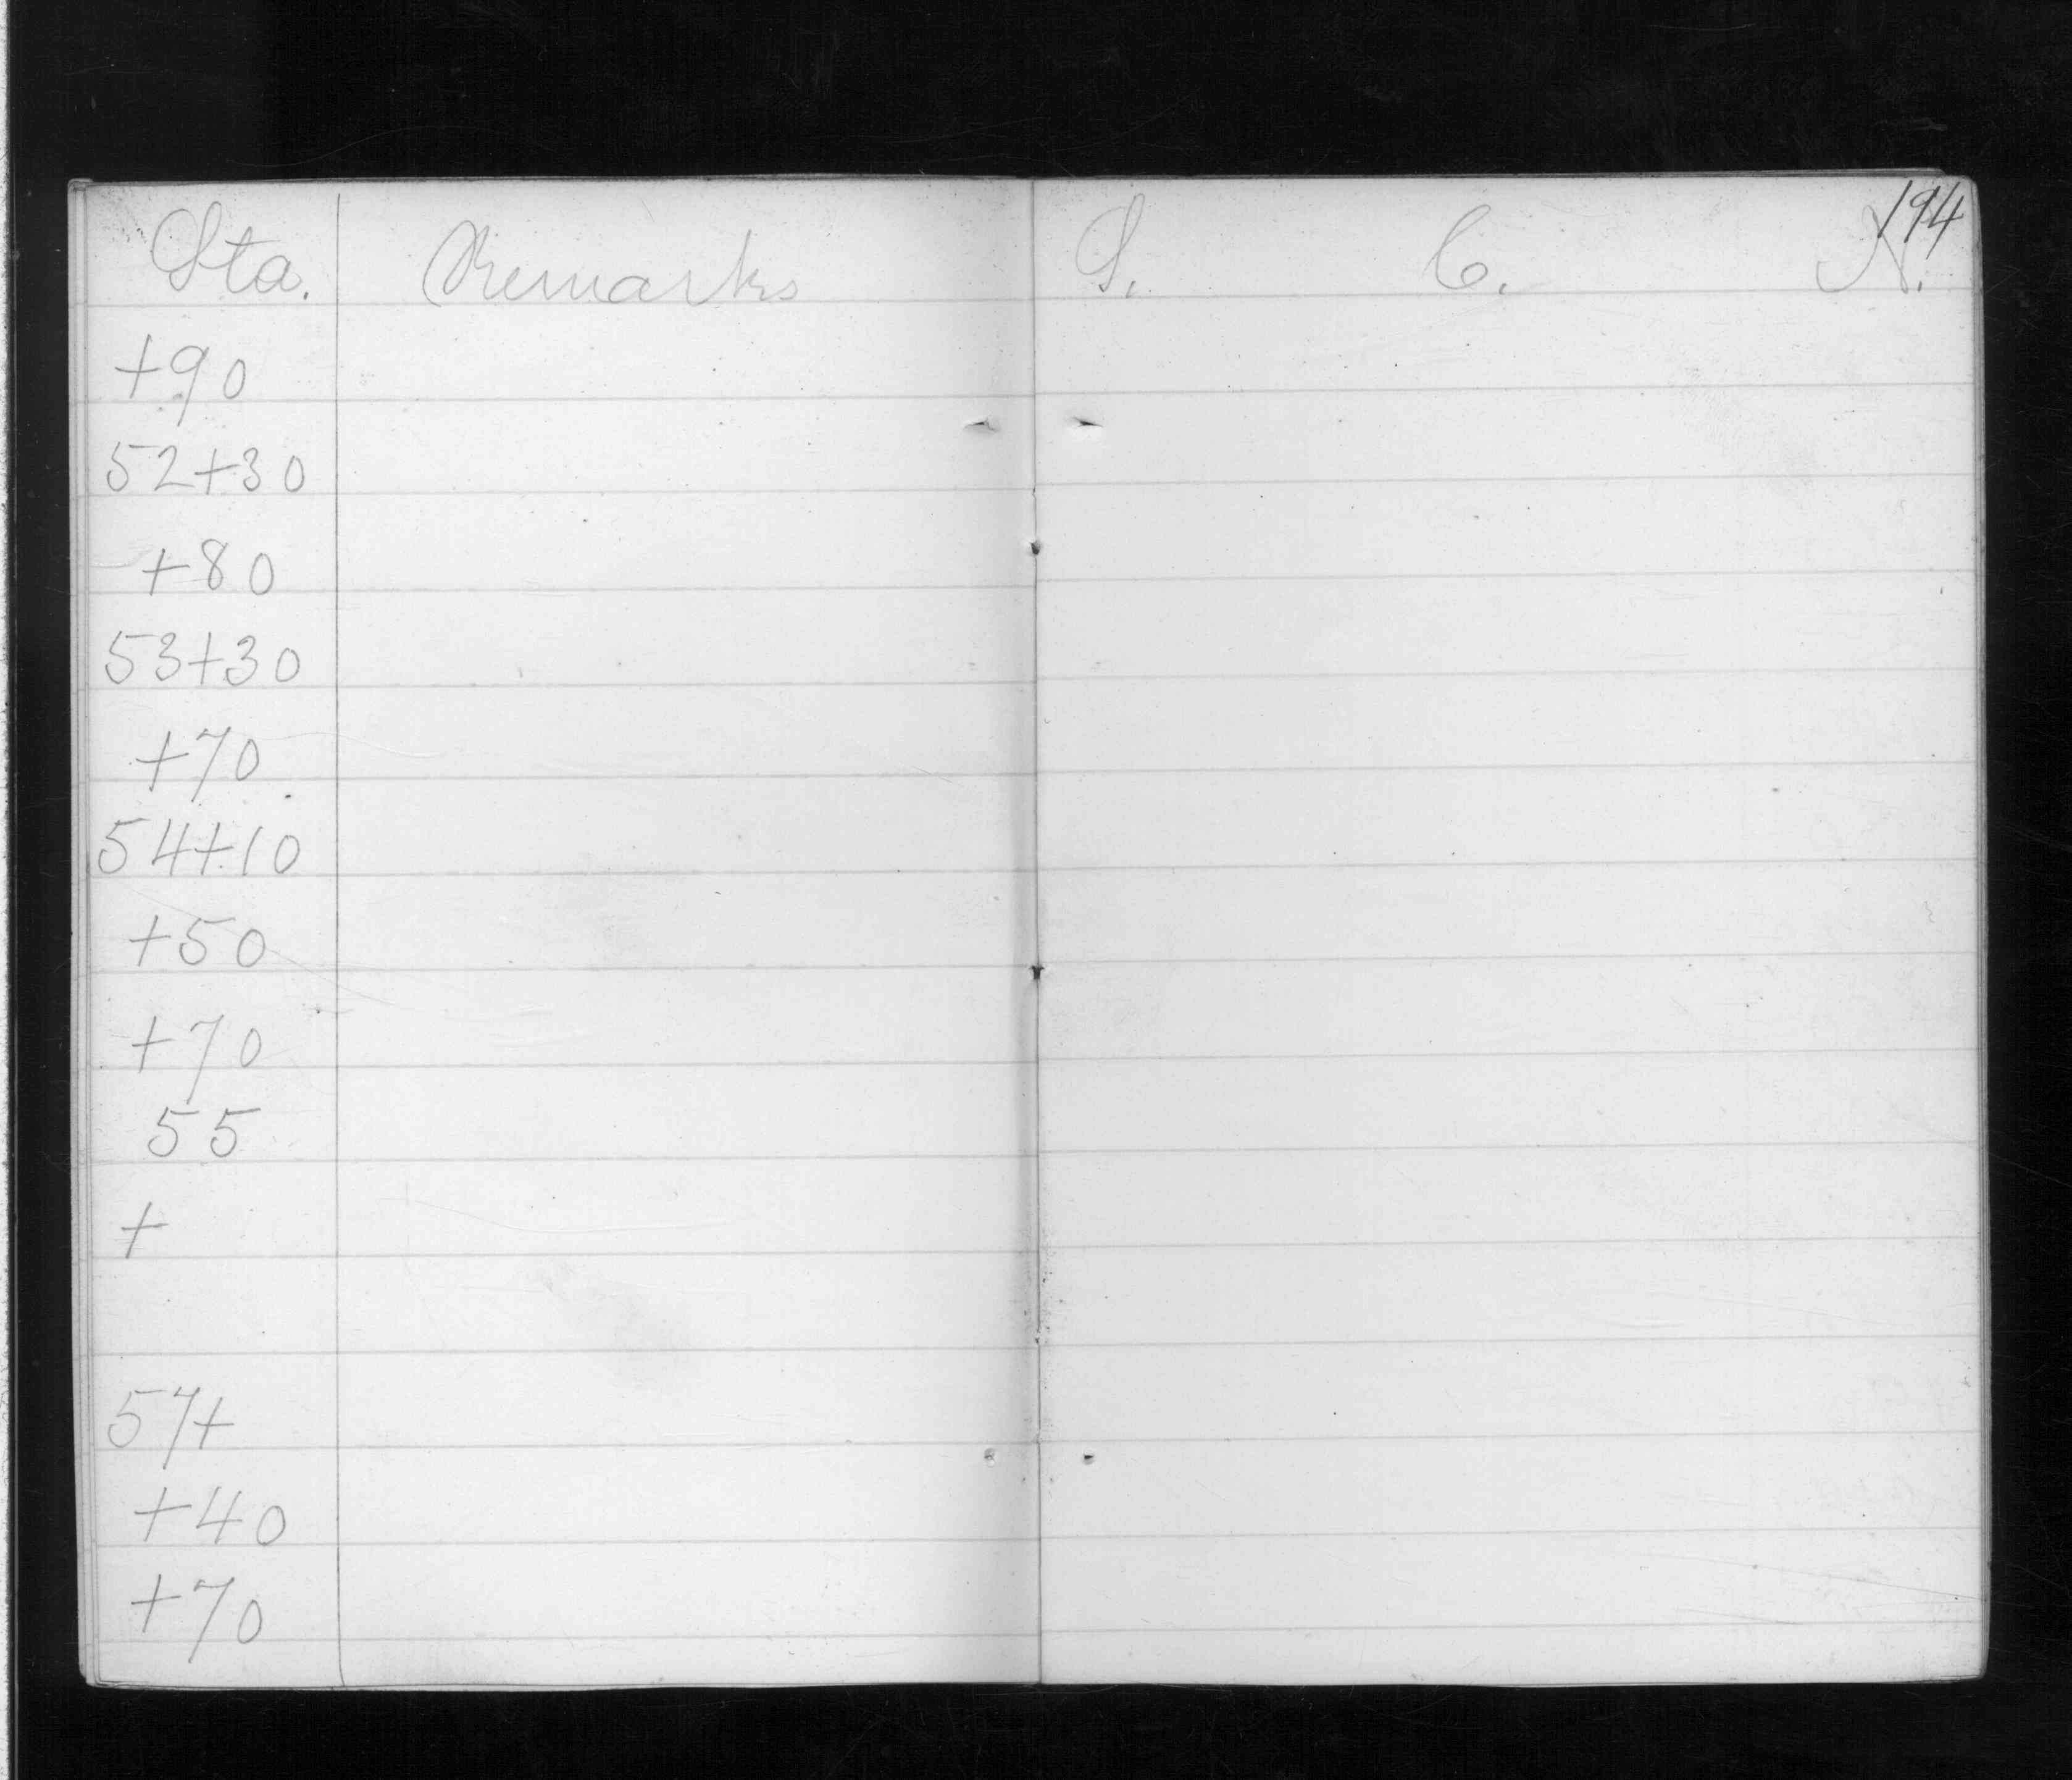 194
Sta. Remarks S. C. N.
+90
52+30
+80
53+30
+70
54+10
+50
+70
55
+
57+
+40
+70